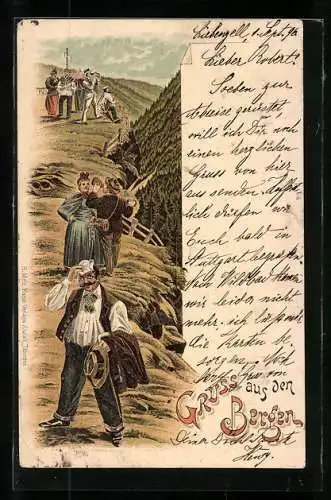 Liebenzell, 1. Sept. 96
Lieber Robert!
Soeben zur
Abreise gerüstet
will ich Dir noch
einen herzlichen
Gruss von hier
aus senden. Hoffent
lich dürfen wir
Euch bald in
Stuttgart begrüssen
Wildbad
wir leider nicht
mehr. ich lasse mir
die Karten be
sorgen.
Gruss aus den
Bergen